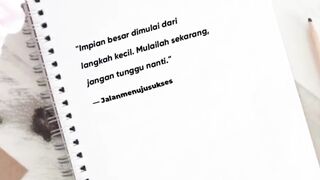 "Impian besar dimulai dari
langkah kecil. Mulailah sekarang,
jangan tunggu nanti."
— Jalanmenujusukses